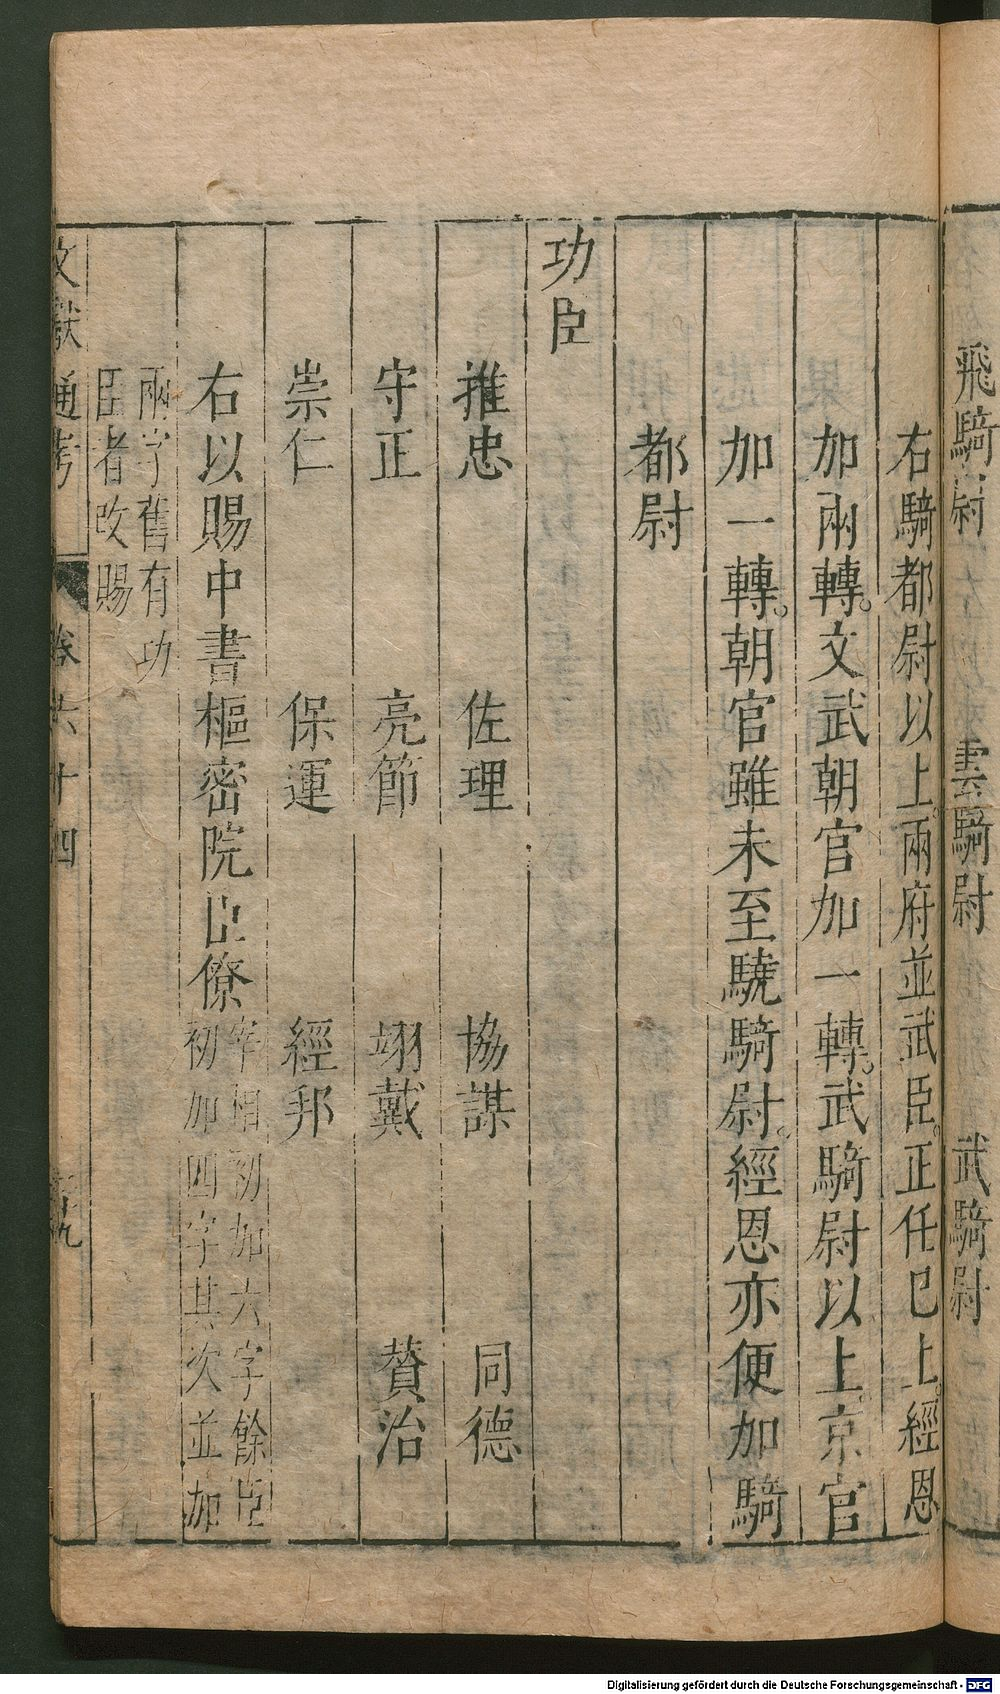 飛騎尉　雲騎尉　武騎尉
右騎都尉以上。兩府並武臣。正任已上。經恩
加兩轉。文武朝官加一轉。武騎尉以上。京官
加一轉。朝官雖未至驍騎尉。經恩亦便加騎
都尉
功臣
推忠　佐理　協謀　同德
守正　亮節　翊戴　贊治
崇仁　保運　經邦
右以賜中書樞密院臣僚
宰相初加六字餘臣
初加四字其次並加
兩字舊有功
臣者改賜
文獻通考　卷六十四　
Digitalisierung gefördert durch die Deutsche Forschungsgemeinschaft - DFG